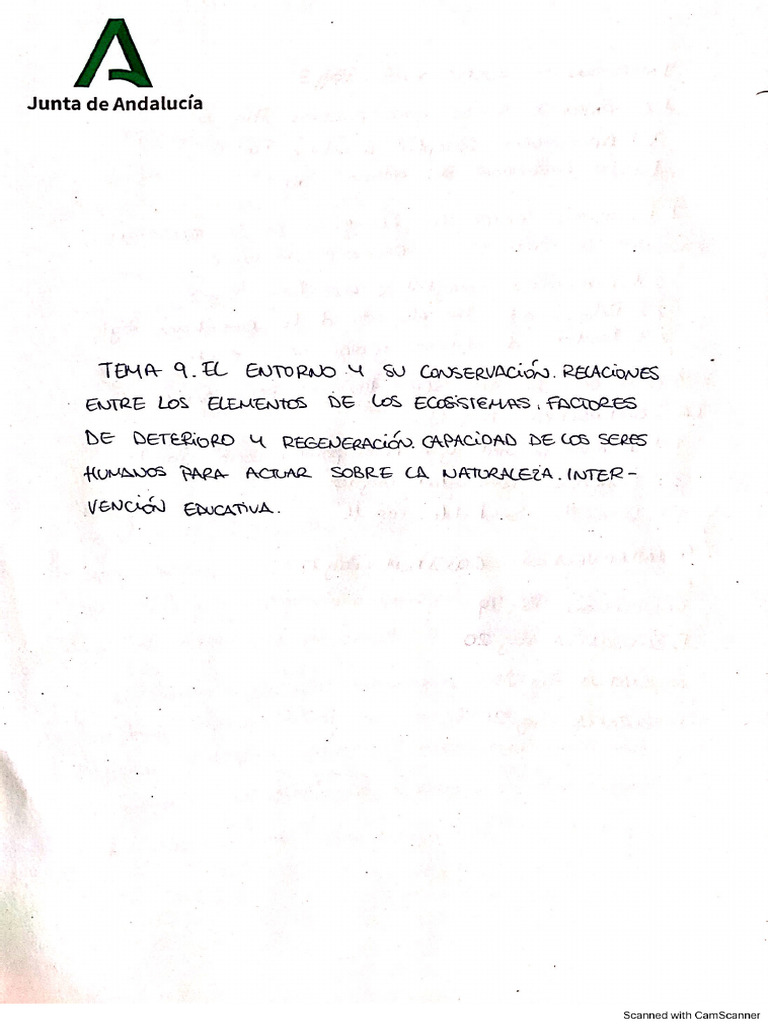 Junta de Andalucía
TEMA 9. EL ENTORNO Y SU CONSERVACIÓN. RELACIONES
ENTRE LOS ELEMENTOS DE LOS ECOSISTEMAS. FACTORES
DE DETERIORO Y REGENERACIÓN. CAPACIDAD DE LOS SERES
HUMANOS PARA ACTUAR SOBRE LA NATURALEZA. INTER-
VENCIÓN EDUCATIVA.
Scanned with CamScanner